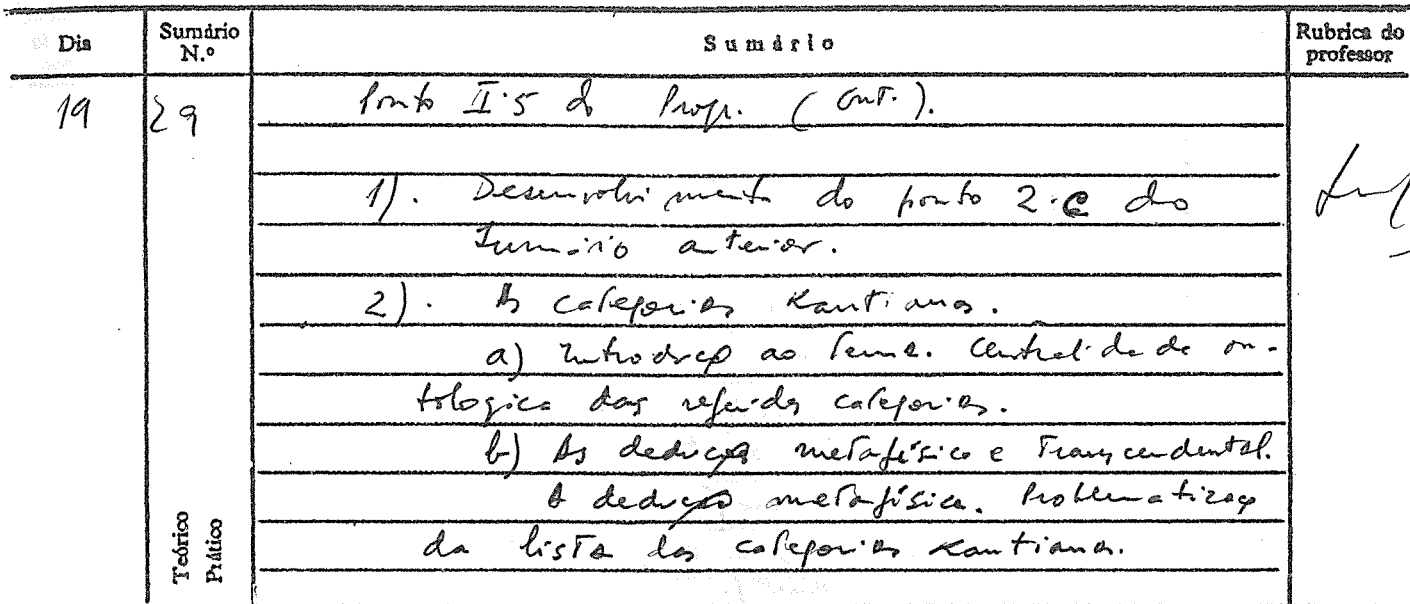 Dia Sumário N.º Sumário Rubrica do professor
19 29 Ponto II.5 do Progr. (Cont.).
1). Desenvolvimento do ponto 2.c do
Sumário anterior.
2). As categorias Kantianas.
a) Introdução ao tema. Centralidade on-
tologica das referidas categorias.
b) As deduções metafísica e Transcendental.
A dedução metafísica. Problematização
da lista das categorias Kantianas.
Teórico
Prático